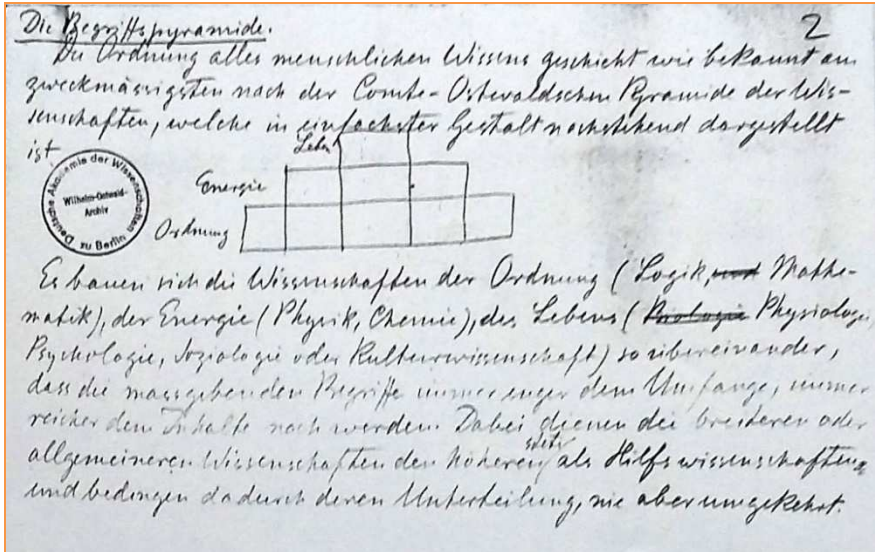 2
Die Begriffspyramide.
Die Ordnung alles menschlichen Wissens geschieht wie bekannt am
zweckmässigsten nach der Comte-Ostwaldschen Pyramide der Wis-
senschaften, welche in einfachster Gestalt nachstehend dargestellt
ist
Leben
Energie
Ordnung
Deutsche Akademie der Wissenschaften zu Berlin
Wilhelm-Ostwald-
Archiv
Es bauen sich die Wissenschaften der Ordnung (Logik, und Mathe-
matik), der Energie (Physik, Chemie), des Lebens (Biologie Physiologie,
Psychologie, Soziologie oder Kulturwissenschaft) so übereinander,
dass die massgebenden Begriffe immer enger dem Umfange, immer
reicher dem Inhalte nach werden. Dabei dienen die breiteren oder
allgemeineren Wissenschaften den höheren stets als Hilfswissenschaften
und bedingen dadurch deren Unterteilung, nie aber umgekehrt.